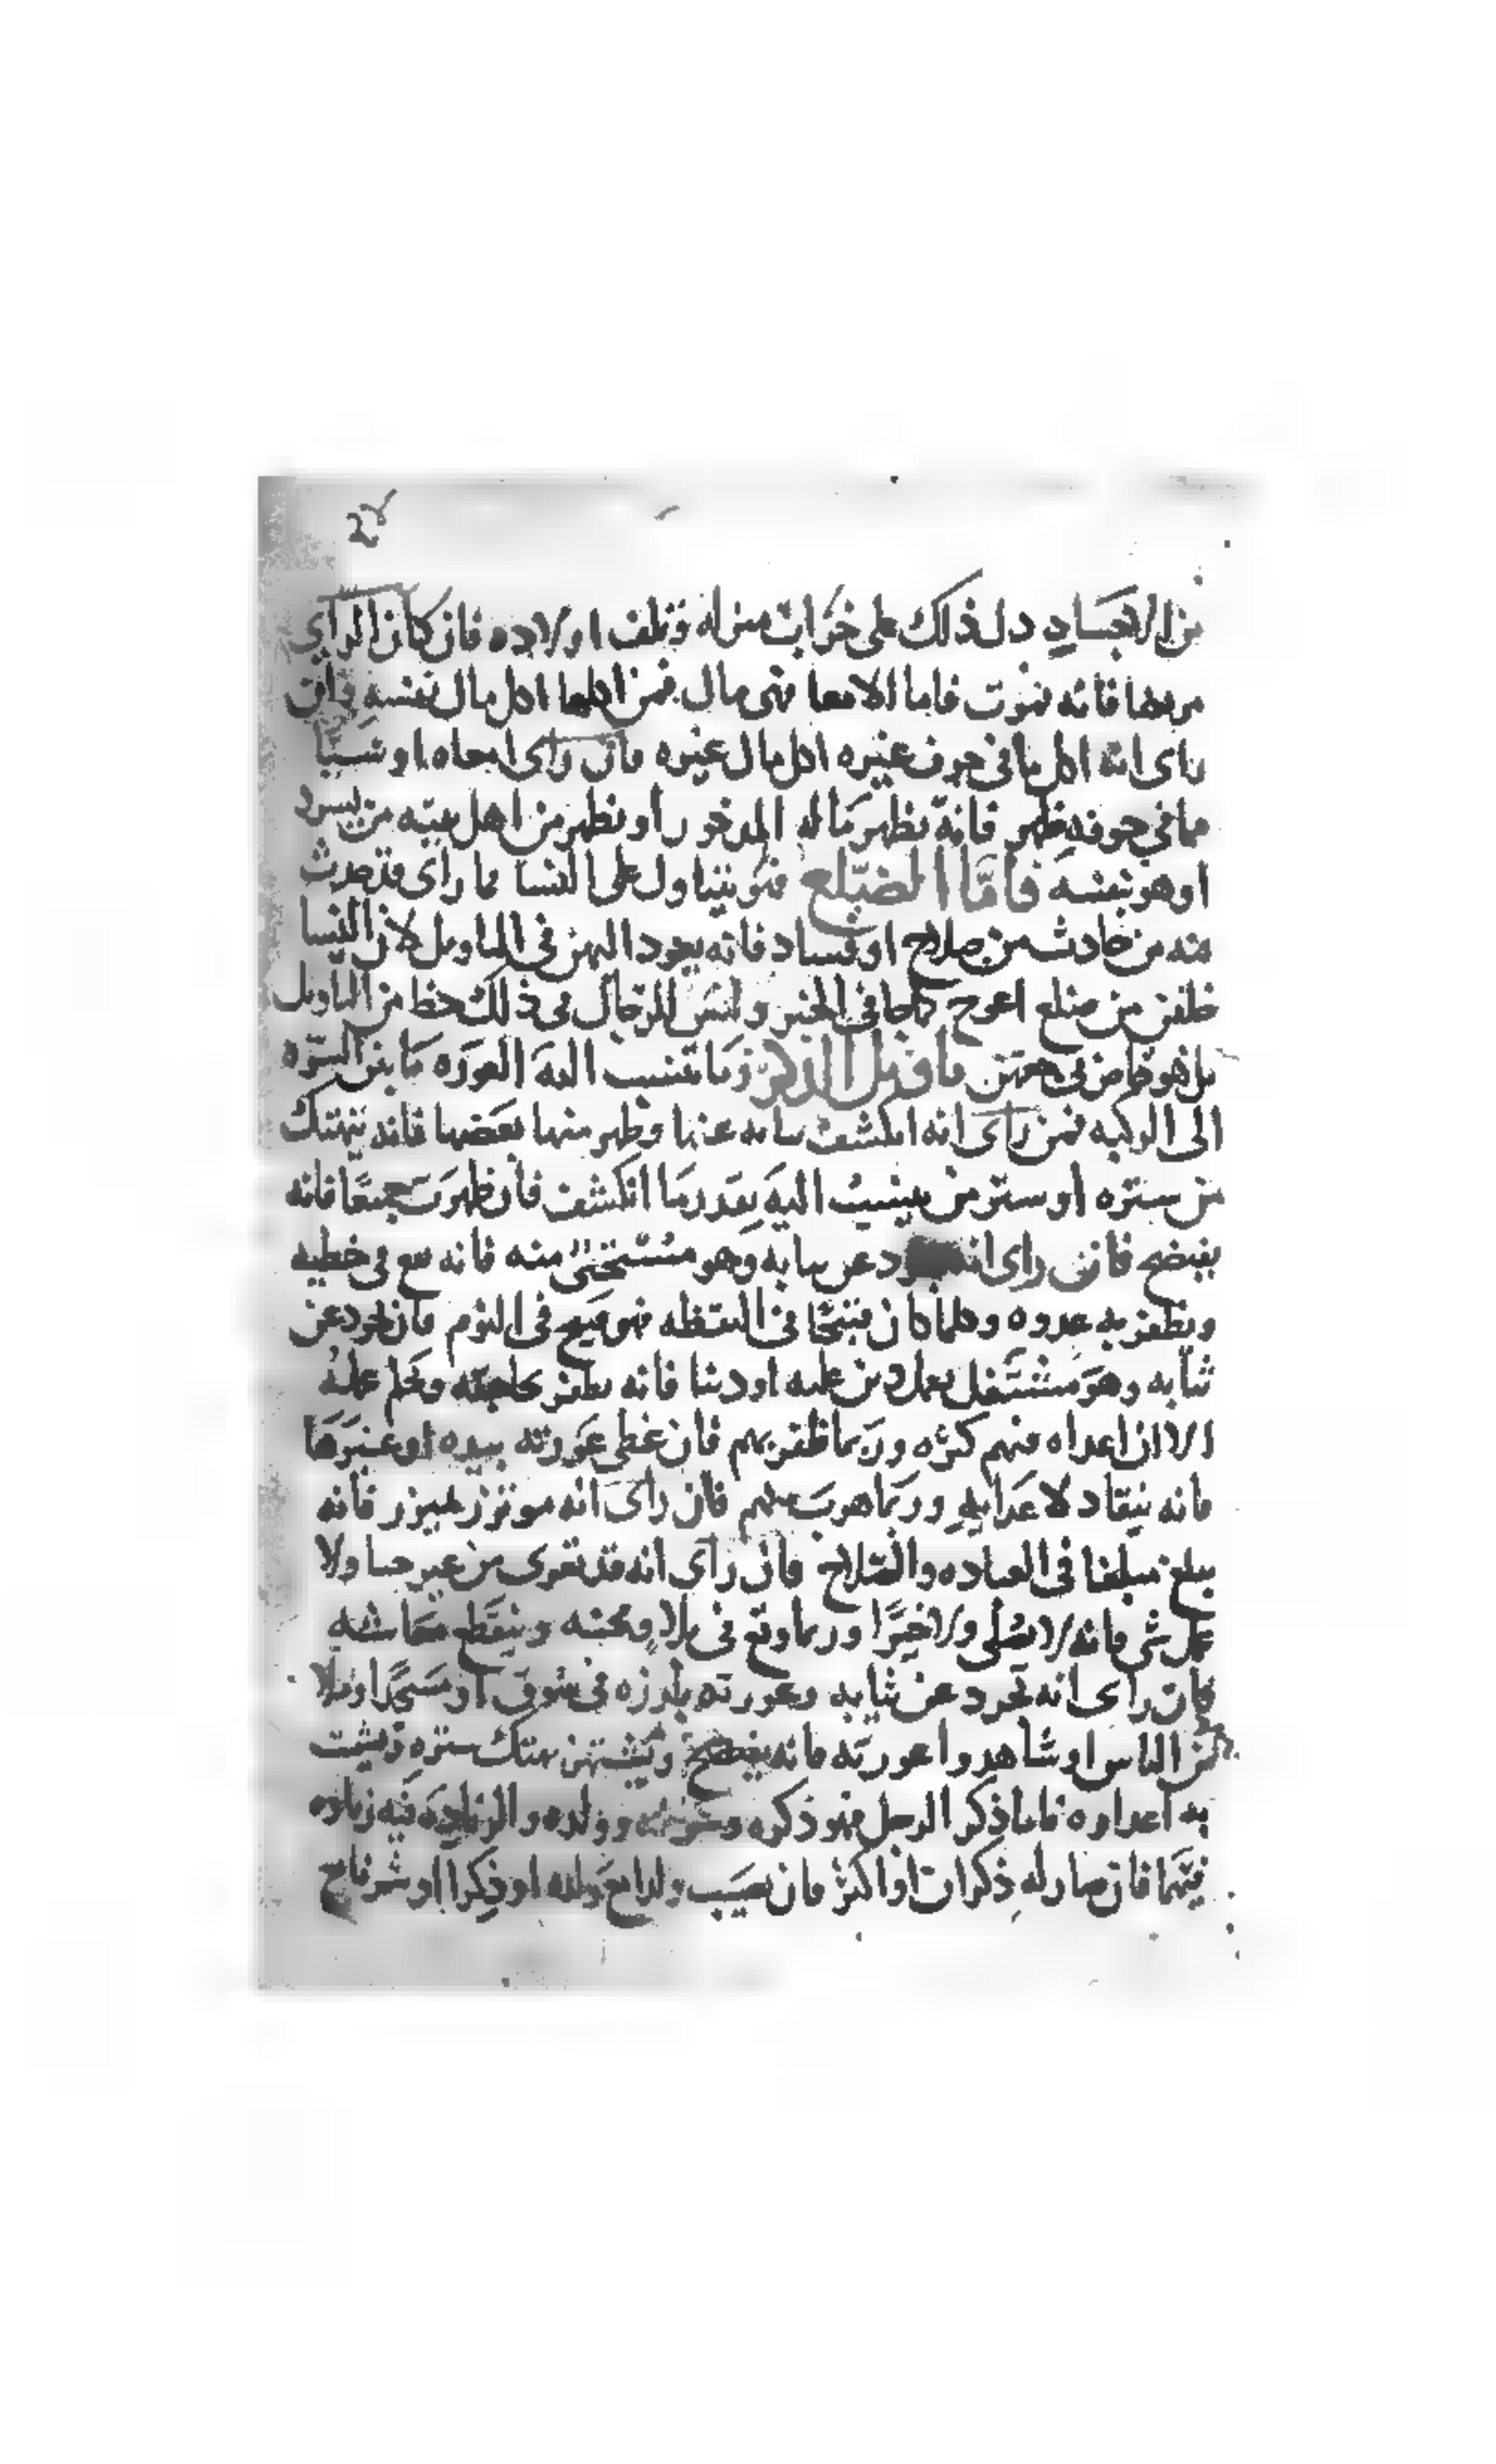 من الاجساد دل ذلك على خراب منزله وتلف اولاده فان كان الراى
مريضا فانه يموت فاما الامعا فهى مال فمن اكلها اكل مال نفسه فان
راى انه اكل ما فى جوف غيره اكل مال غيره فان راى امعاه او شيا
مما فى جوفه ظهر فانه يظهر ماله المدخور او يظهر من اهل بيته من يسود
او هو بنفسه فاما الضلع فهو يتناول على النسا فما راى قد حدث
منه من حادث من صلاح او فساد فانه يعود اليهن فى التاويل لان النسا
خلقن من ضلع اعوج كما جا فى الخبر وليس للرجال فى ذلك حظ من التاويل
بل هو خاص فى حقهن ما قيل الذكر وما تنسب اليه العوره ما بين السره
الى الركبه فمن راى انه انكشفت ثيابه عنها وظهر منها بعضها فانه ينهتك
من ستره او ستر من ينسب اليه بقدر ما انكشف فان ظهرت جميعا فانه
يفتضح فان راى انه تجرد عن ثيابه وهو مستحى منه فانه يقع فى خطيه
ويظفر به عدوه وكلما كان قبيحا فى اليقظه فهو قبيح فى النوم فان تجرد عن
ثيابه وهو مشتغل بعمل دين عليه او دنيا فانه يظفر بحاجته وتحلم عليه
الا ان اعداه منهم كثره وربما ظفر بهم فان غطى عورته بيده او غيرها
فانه ينقاد لاعدايه وربما هرب منهم فان راى انه موتزر بميزر فانه
يبلغ مبلغا فى العباده والصلاح فان راى انه قد تعرى من غير حيا ولا
عمل شى فانه لا يصلى ولا خيرا وربما وقع فى بلا ومحنه وينقطع معاشه
فان راى انه تجرد عن ثيابه وعورته بارزه فى سوق او مسجد او ملا
من الناس او شاهدوا عورته فانه يفتضح ويشتهر بهتك ستره ويشمت
به اعداوه فاما ذكر الرجل فهو ذكره وولده والزياده فيه زياده
فيهما فان صار له ذكران او اكثر فان يصيب ولدا مع ولده او ذكرا او شر فاح